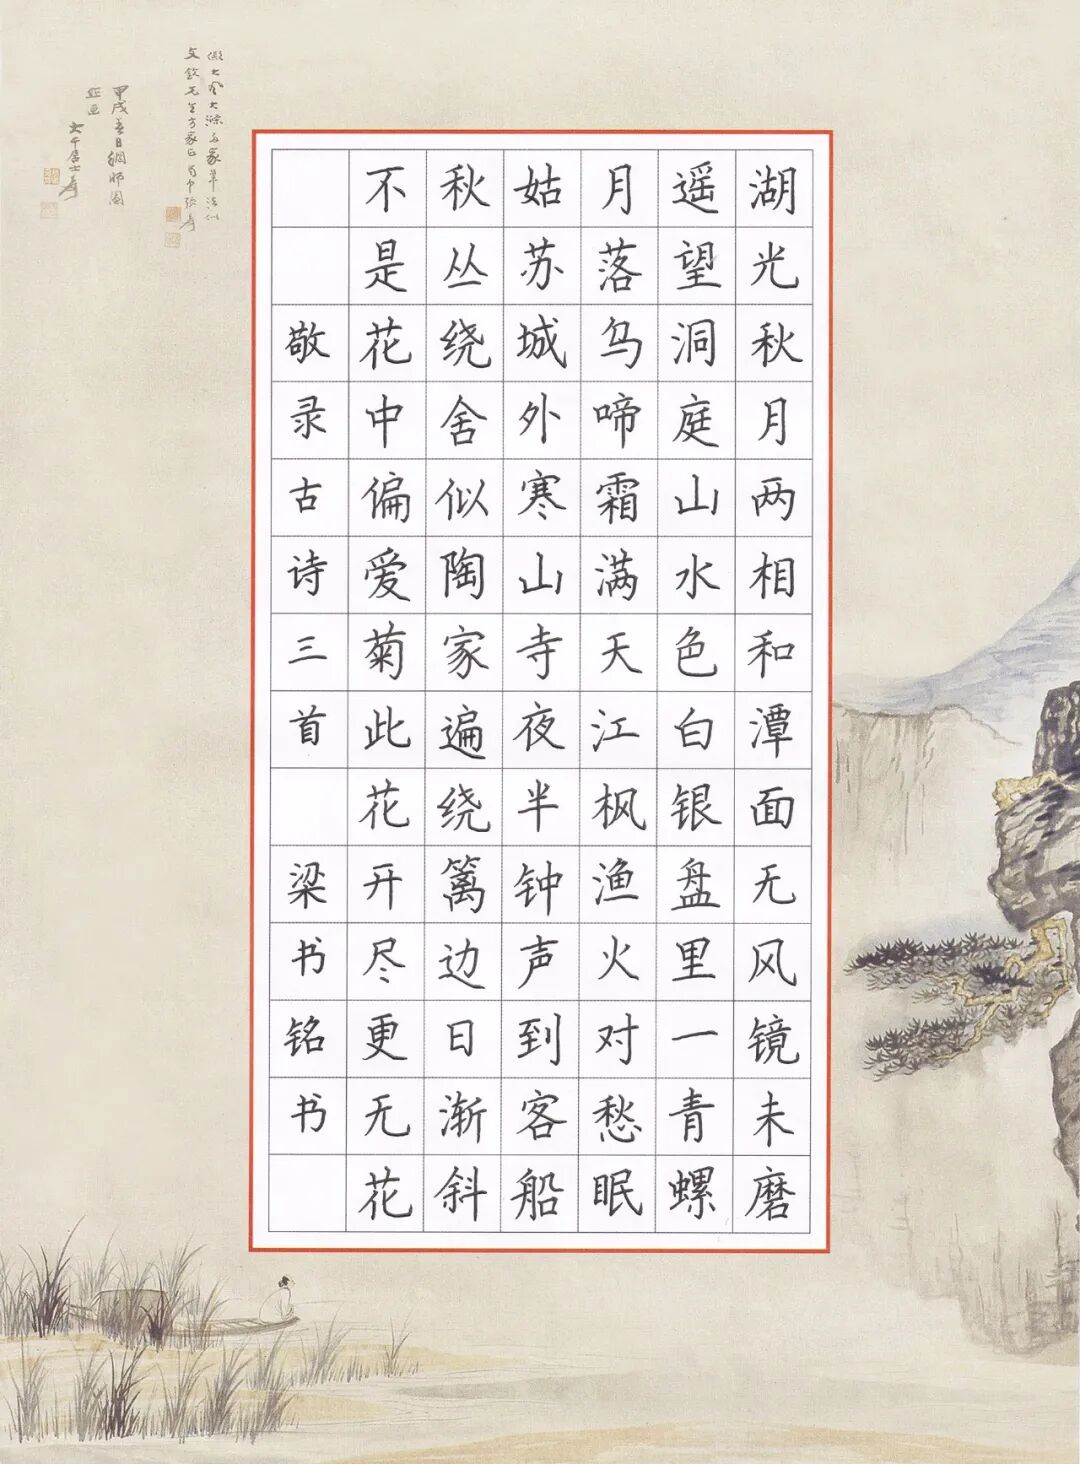 湖光秋月两相和潭面无风镜未磨
遥望洞庭山水色白银盘里一青螺
月落乌啼霜满天江枫渔火对愁眠
姑苏城外寒山寺夜半钟声到客船
秋丛绕舍似陶家遍绕篱边日渐斜
不是花中偏爱菊此花开尽更无花
敬录古诗三首 梁书铭书